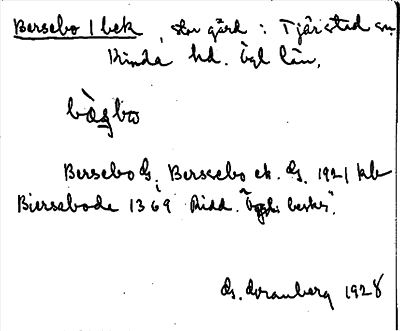 Bersebo 1 bek, stor gård i Tjärstad sn
Kinda hd. Ögl län.
Bersebo ds. Bersebo ek. ds. 1921 kb
Biersabode 1369 Ridd.
ds. Granberg 1928